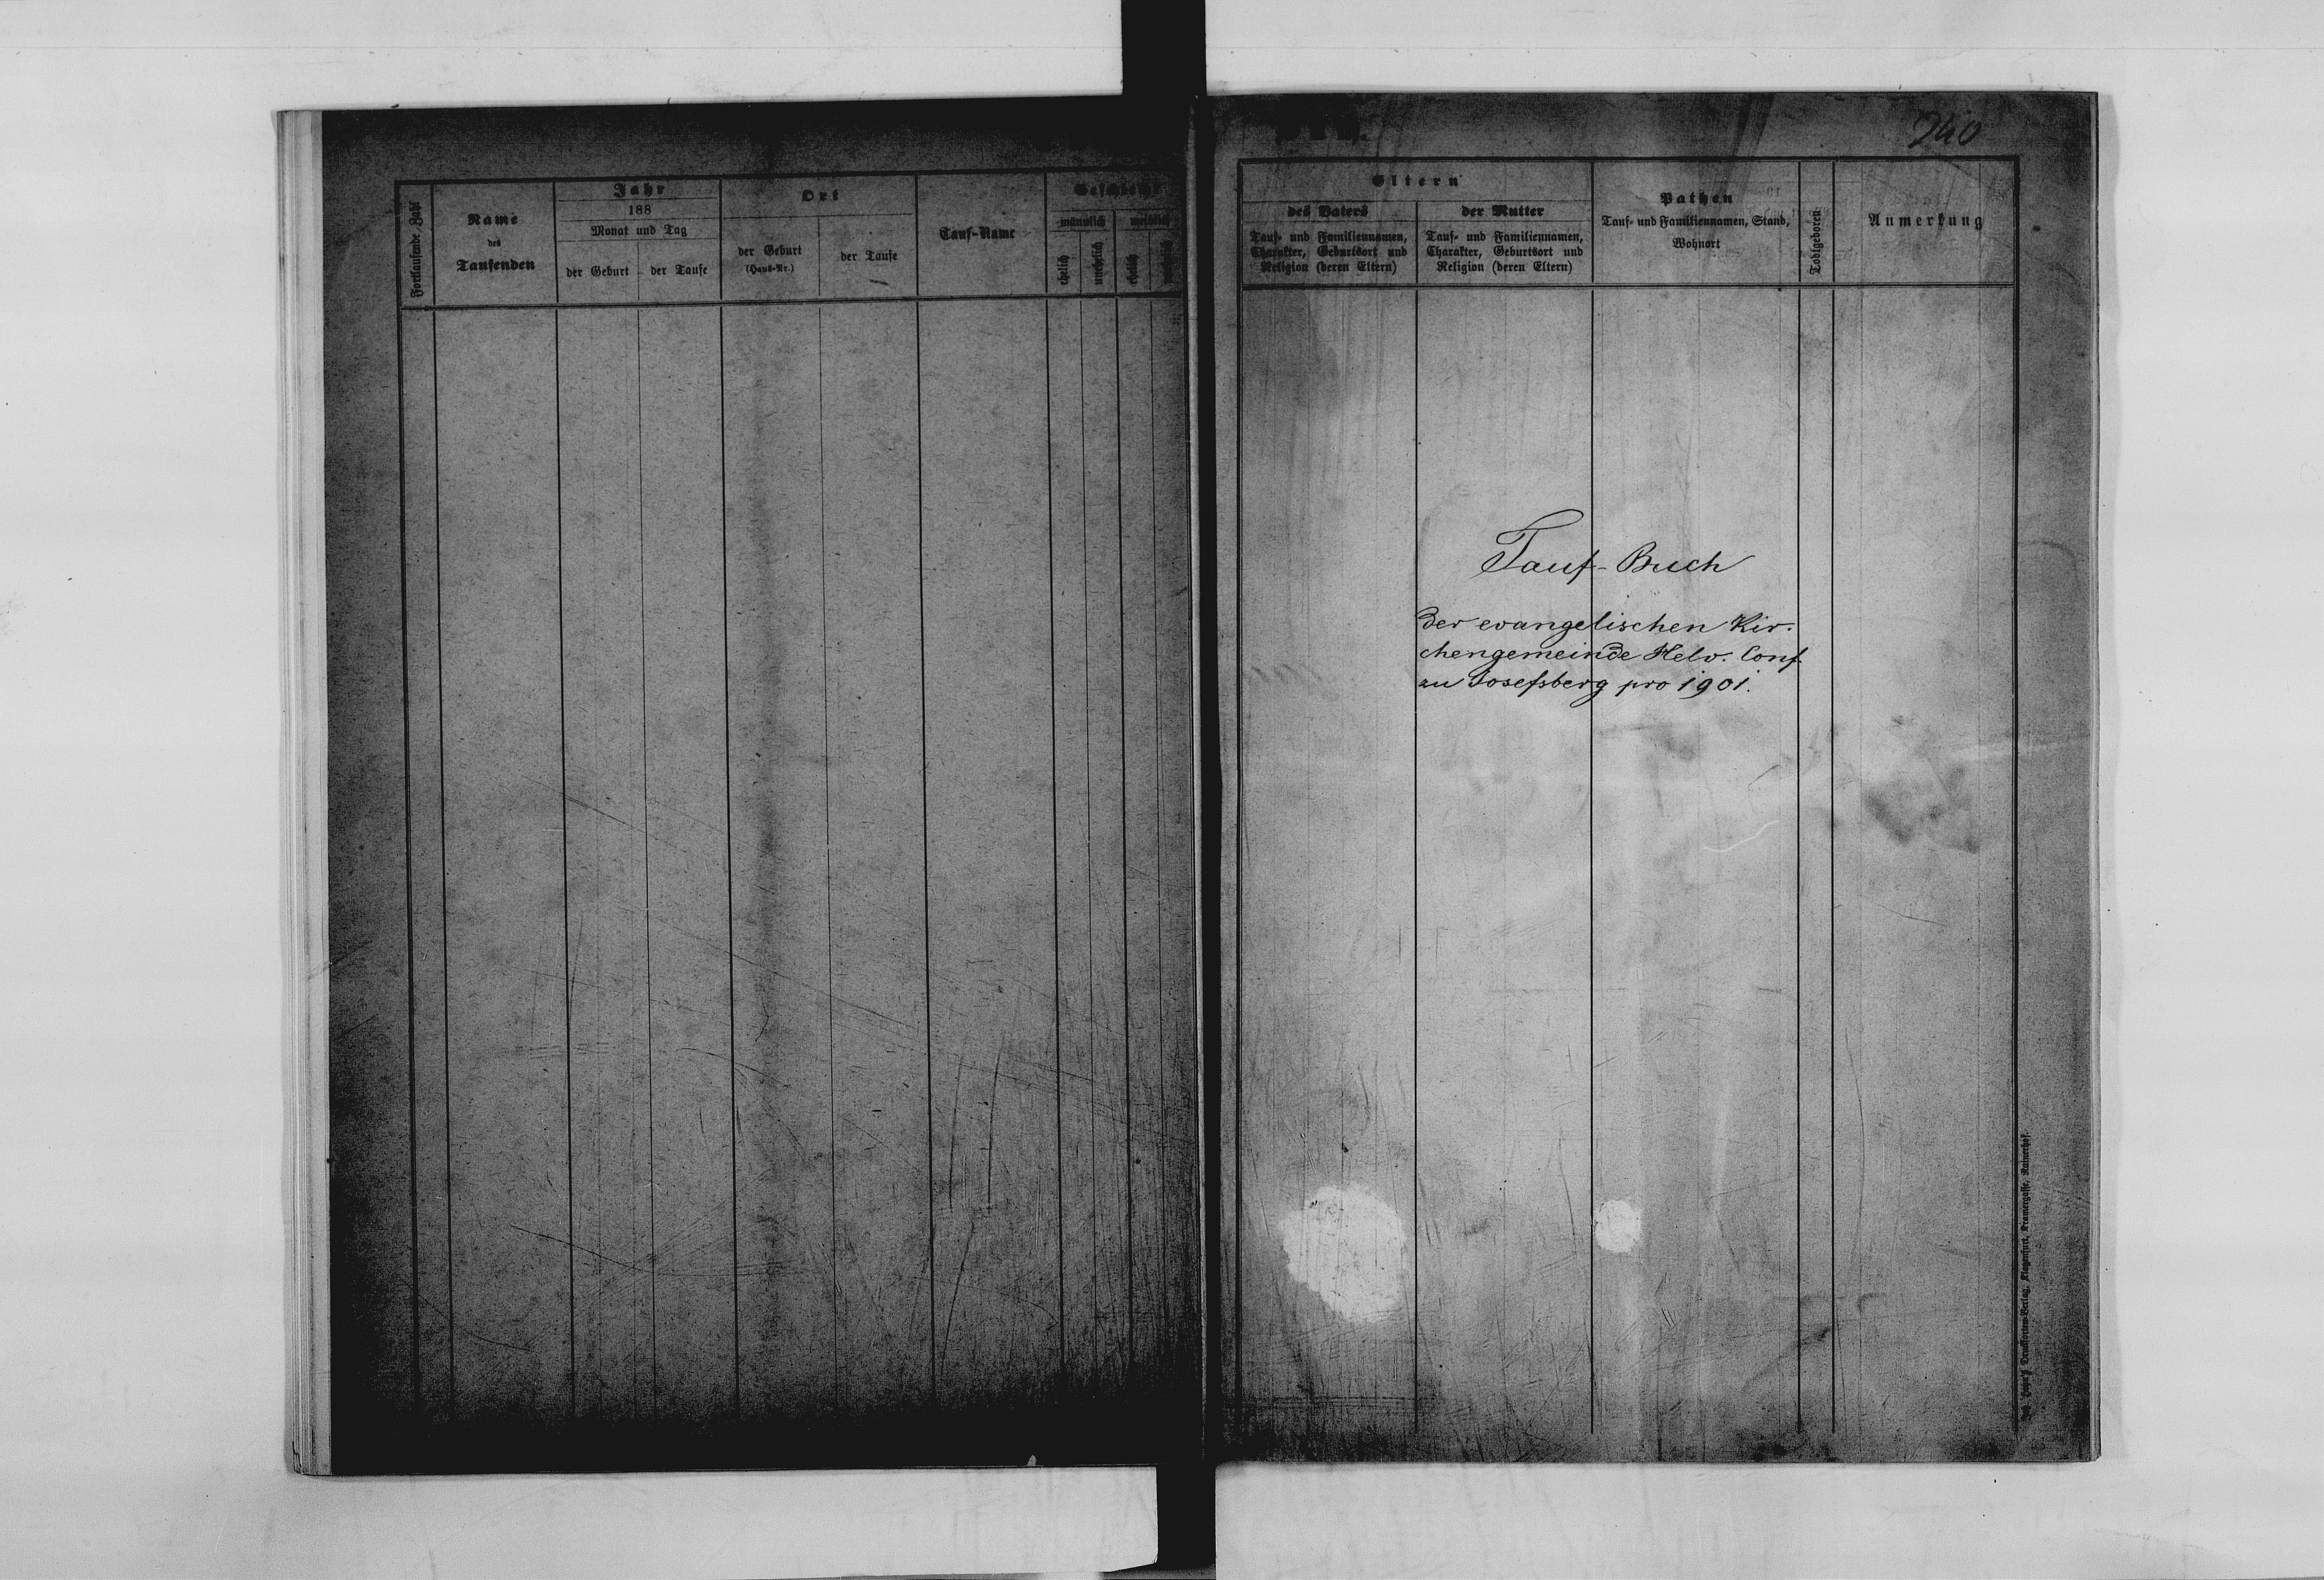 Fortlaufende Zahl
Name
des
Taufenden
Jahr
188
Monat und Tag
der Geburt
der Taufe
Ort
der Geburt
(Haus-Nr.)
der Taufe
Tauf-Name
Geschlecht
männlich
weiblich
ehelich
unehelich
ehelich
240
Eltern
des Vaters
Tauf- und Familiennamen,
Charakter, Geburtsort und
Religion (deren Eltern)
der Mutter
Tauf- und Familiennamen,
Charakter, Geburtsort und
Religion (deren Eltern)
Pathen
Tauf- und Familiennamen, Stand,
Wohnort
Todtgeboren
Anmerkung
Tauf-Buch
der evangelischen Kir-
chengemeinde Helv. Conf.
zu Josefsberg pro 1901.
Drucksorten-Verlag, Klagenfurt, Kramergasse, Rainerhof.